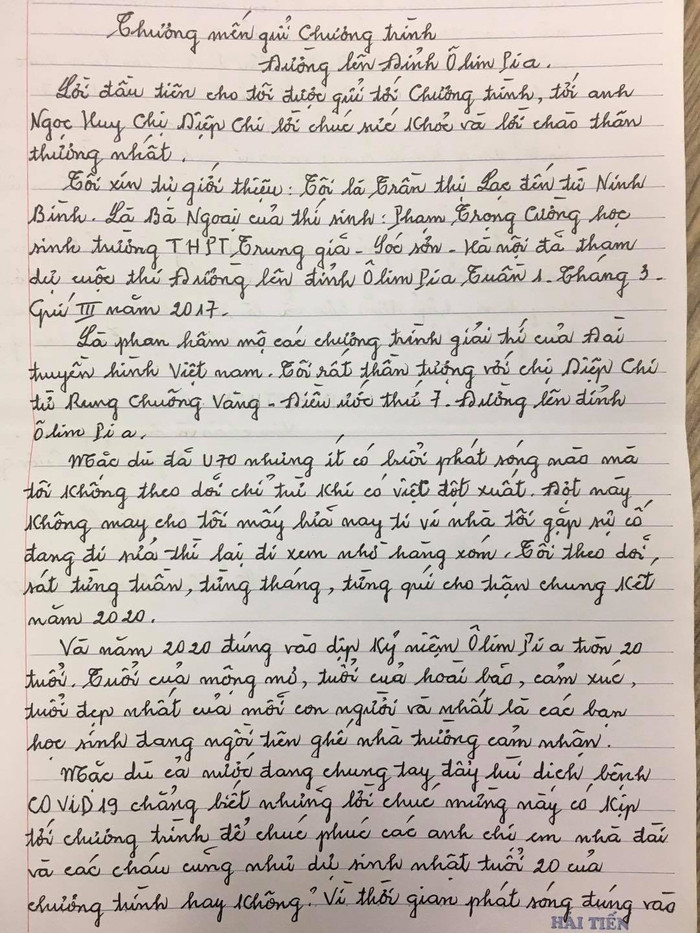 Thương mến gửi Chương trình
Đường lên Đỉnh Ô lim Pi a.
Lời đầu tiên cho tôi được gửi tới Chương trình, tới anh
Ngọc Huy Chị Diệp Chi lời chúc sức khoẻ và lời chào thân
thương nhất.
Tôi xin tự giới thiệu: Tôi là Trần thị Lạc đến từ Ninh
Bình. Là Bà Ngoại của thí sinh: Phạm Trọng Cường học
sinh trường THPT Trung giã - Sóc sơn - Hà nội đã tham
dự cuộc thi Đường lên đỉnh Ô lim Pi a Tuần 1 - Tháng 3 -
Quí III năm 2017.
Là phan hâm mộ các chương trình giải trí của Đài
truyền hình Việt nam. Tôi rất thần tượng với chị Diệp Chi
từ Rung Chuông Vàng - Điều ước thứ 7. Đường lên đỉnh
Ô lim Pi a.
Mặc dù đã U70 nhưng ít có buổi phát sóng nào mà
tôi không theo dõi chỉ trừ khi có việc đột xuất. Đợt này
không may cho tôi mấy bữa nay ti vi nhà tôi gặp sự cố
đang đi sửa thì lại đi xem nhờ hàng xóm. Tôi theo dõi
sát từng tuần, từng tháng, từng quí cho trận chung kết
năm 2020.
Và năm 2020 đúng vào dịp kỷ niệm Ô lim Pi a tròn 20
tuổi. Tuổi của mộng mơ, tuổi của hoài bão, cảm xúc,
tuổi đẹp nhất của mỗi con người và nhất là các bạn
học sinh đang ngồi trên ghế nhà trường cảm nhận.
Mặc dù cả nước đang chung tay đẩy lùi dịch bệnh
COVID19 chẳng biết những lời chúc mừng này có kịp
tới chương trình để chúc phúc các anh chị em nhà đài
và các cháu cũng như dự sinh nhật tuổi 20 của
chương trình hay không? Vì thời gian phát sóng đúng vào
HẢI TIẾN